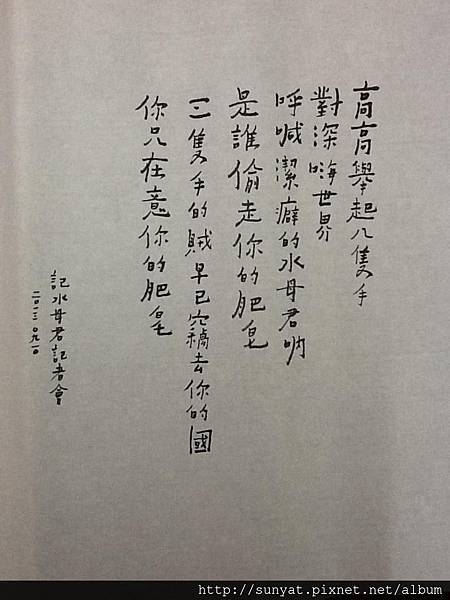 高高舉起八隻手
對深海世界
呼喊潔癖的水母君吶
是誰偷走你的肥皂
三隻手的賊早已穴竊去你的國
你只在意你的肥皂
記水母君記者會
二〇一三〇九二〇
http://sunyat.pixnet.net/album